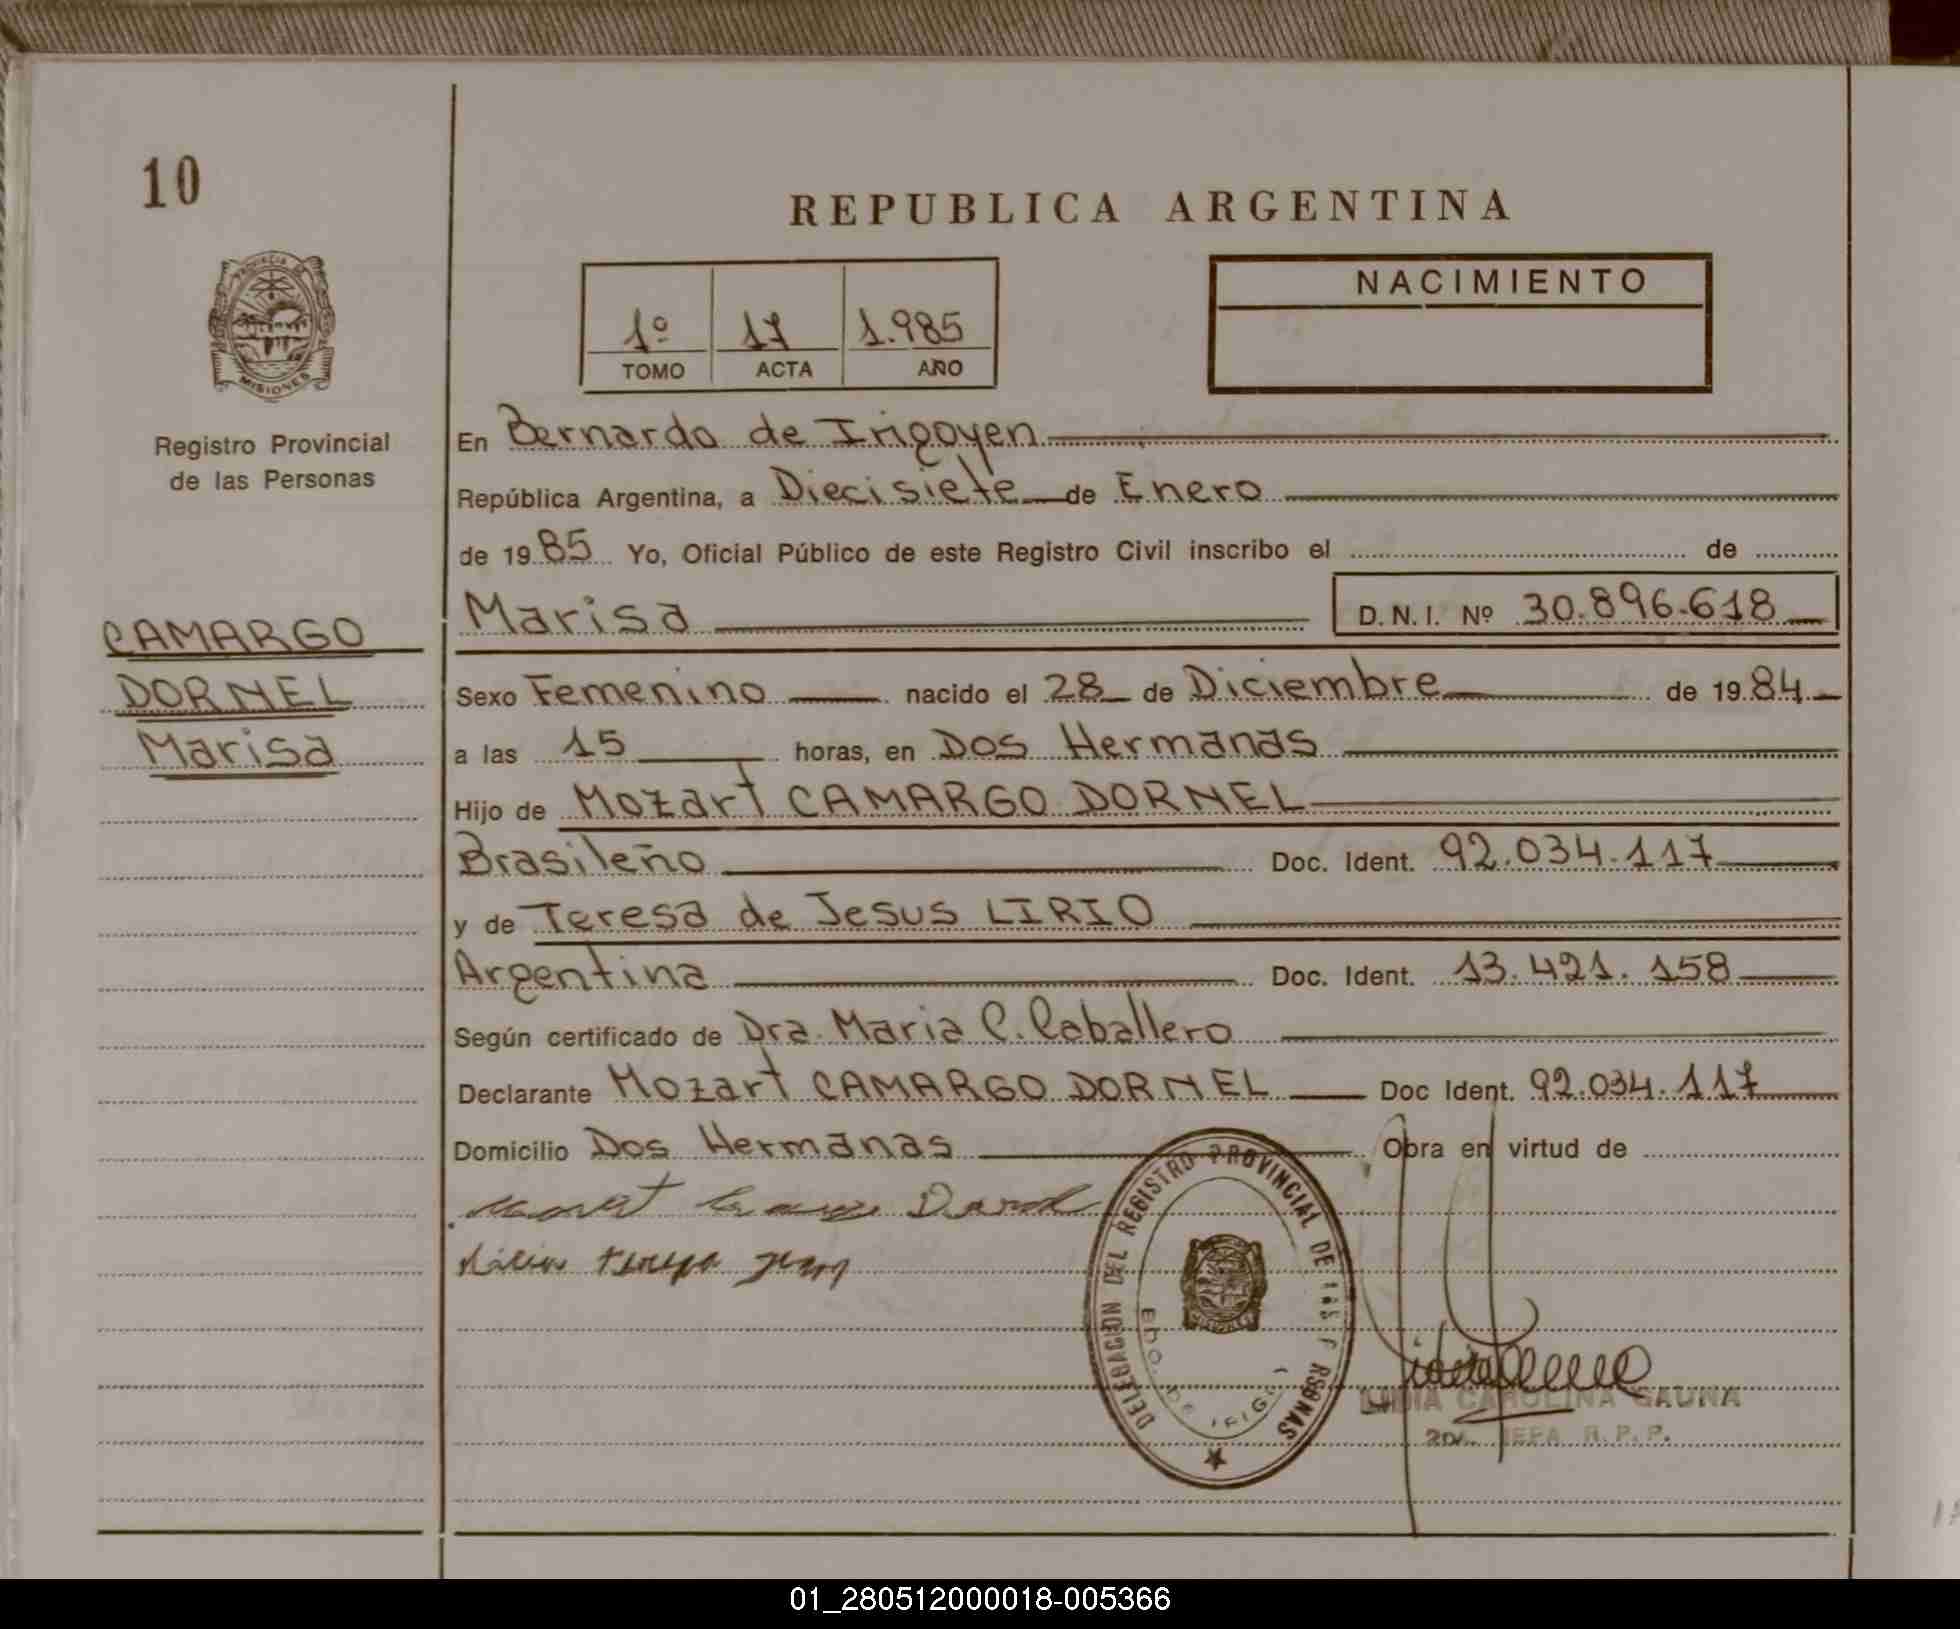 10
REPUBLICA ARGENTINA
NACIMIENTO
1º 17 1.985
TOMO ACTA AÑO
PROVINCIA DE
MISIONES
Registro Provincial
de las Personas
En Bernardo de Irigoyen
República Argentina, a Diecisiete de Enero
de 19 85 Yo, Oficial Público de este Registro Civil inscribo el de
Marisa D.N.I. Nº 30.896.618
CAMARGO
DORNEL
Marisa
Sexo Femenino nacido el 28 de Diciembre de 19 84
a las 15 horas, en Dos Hermanas
Hijo de Mozart CAMARGO DORNEL
Brasileño Doc. Ident. 92.034.117
y de Teresa de Jesus LIRIO
Argentina Doc. Ident. 13.421.158
Según certificado de Dra. Maria C. Caballero
Declarante Mozart CAMARGO DORNEL Doc Ident. 92.034.117
Domicilio Dos Hermanas Obra en virtud de
DELEGACION DEL REGISTRO PROVINCIAL DE LAS PERSONAS
BDO. DE IRIGOY
LIDIA CAROLINA GAUNA
2da. JEFA R.P.P.
01_280512000018-005366